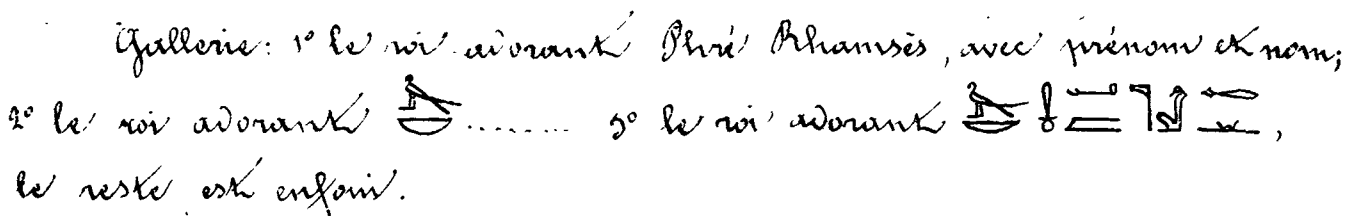 Gallerie: 1° le roi adorant Phré Rhamsès, avec prénom et nom;
2° le roi adorant ........ 3° le roi adorant ,
le reste est enfoui.